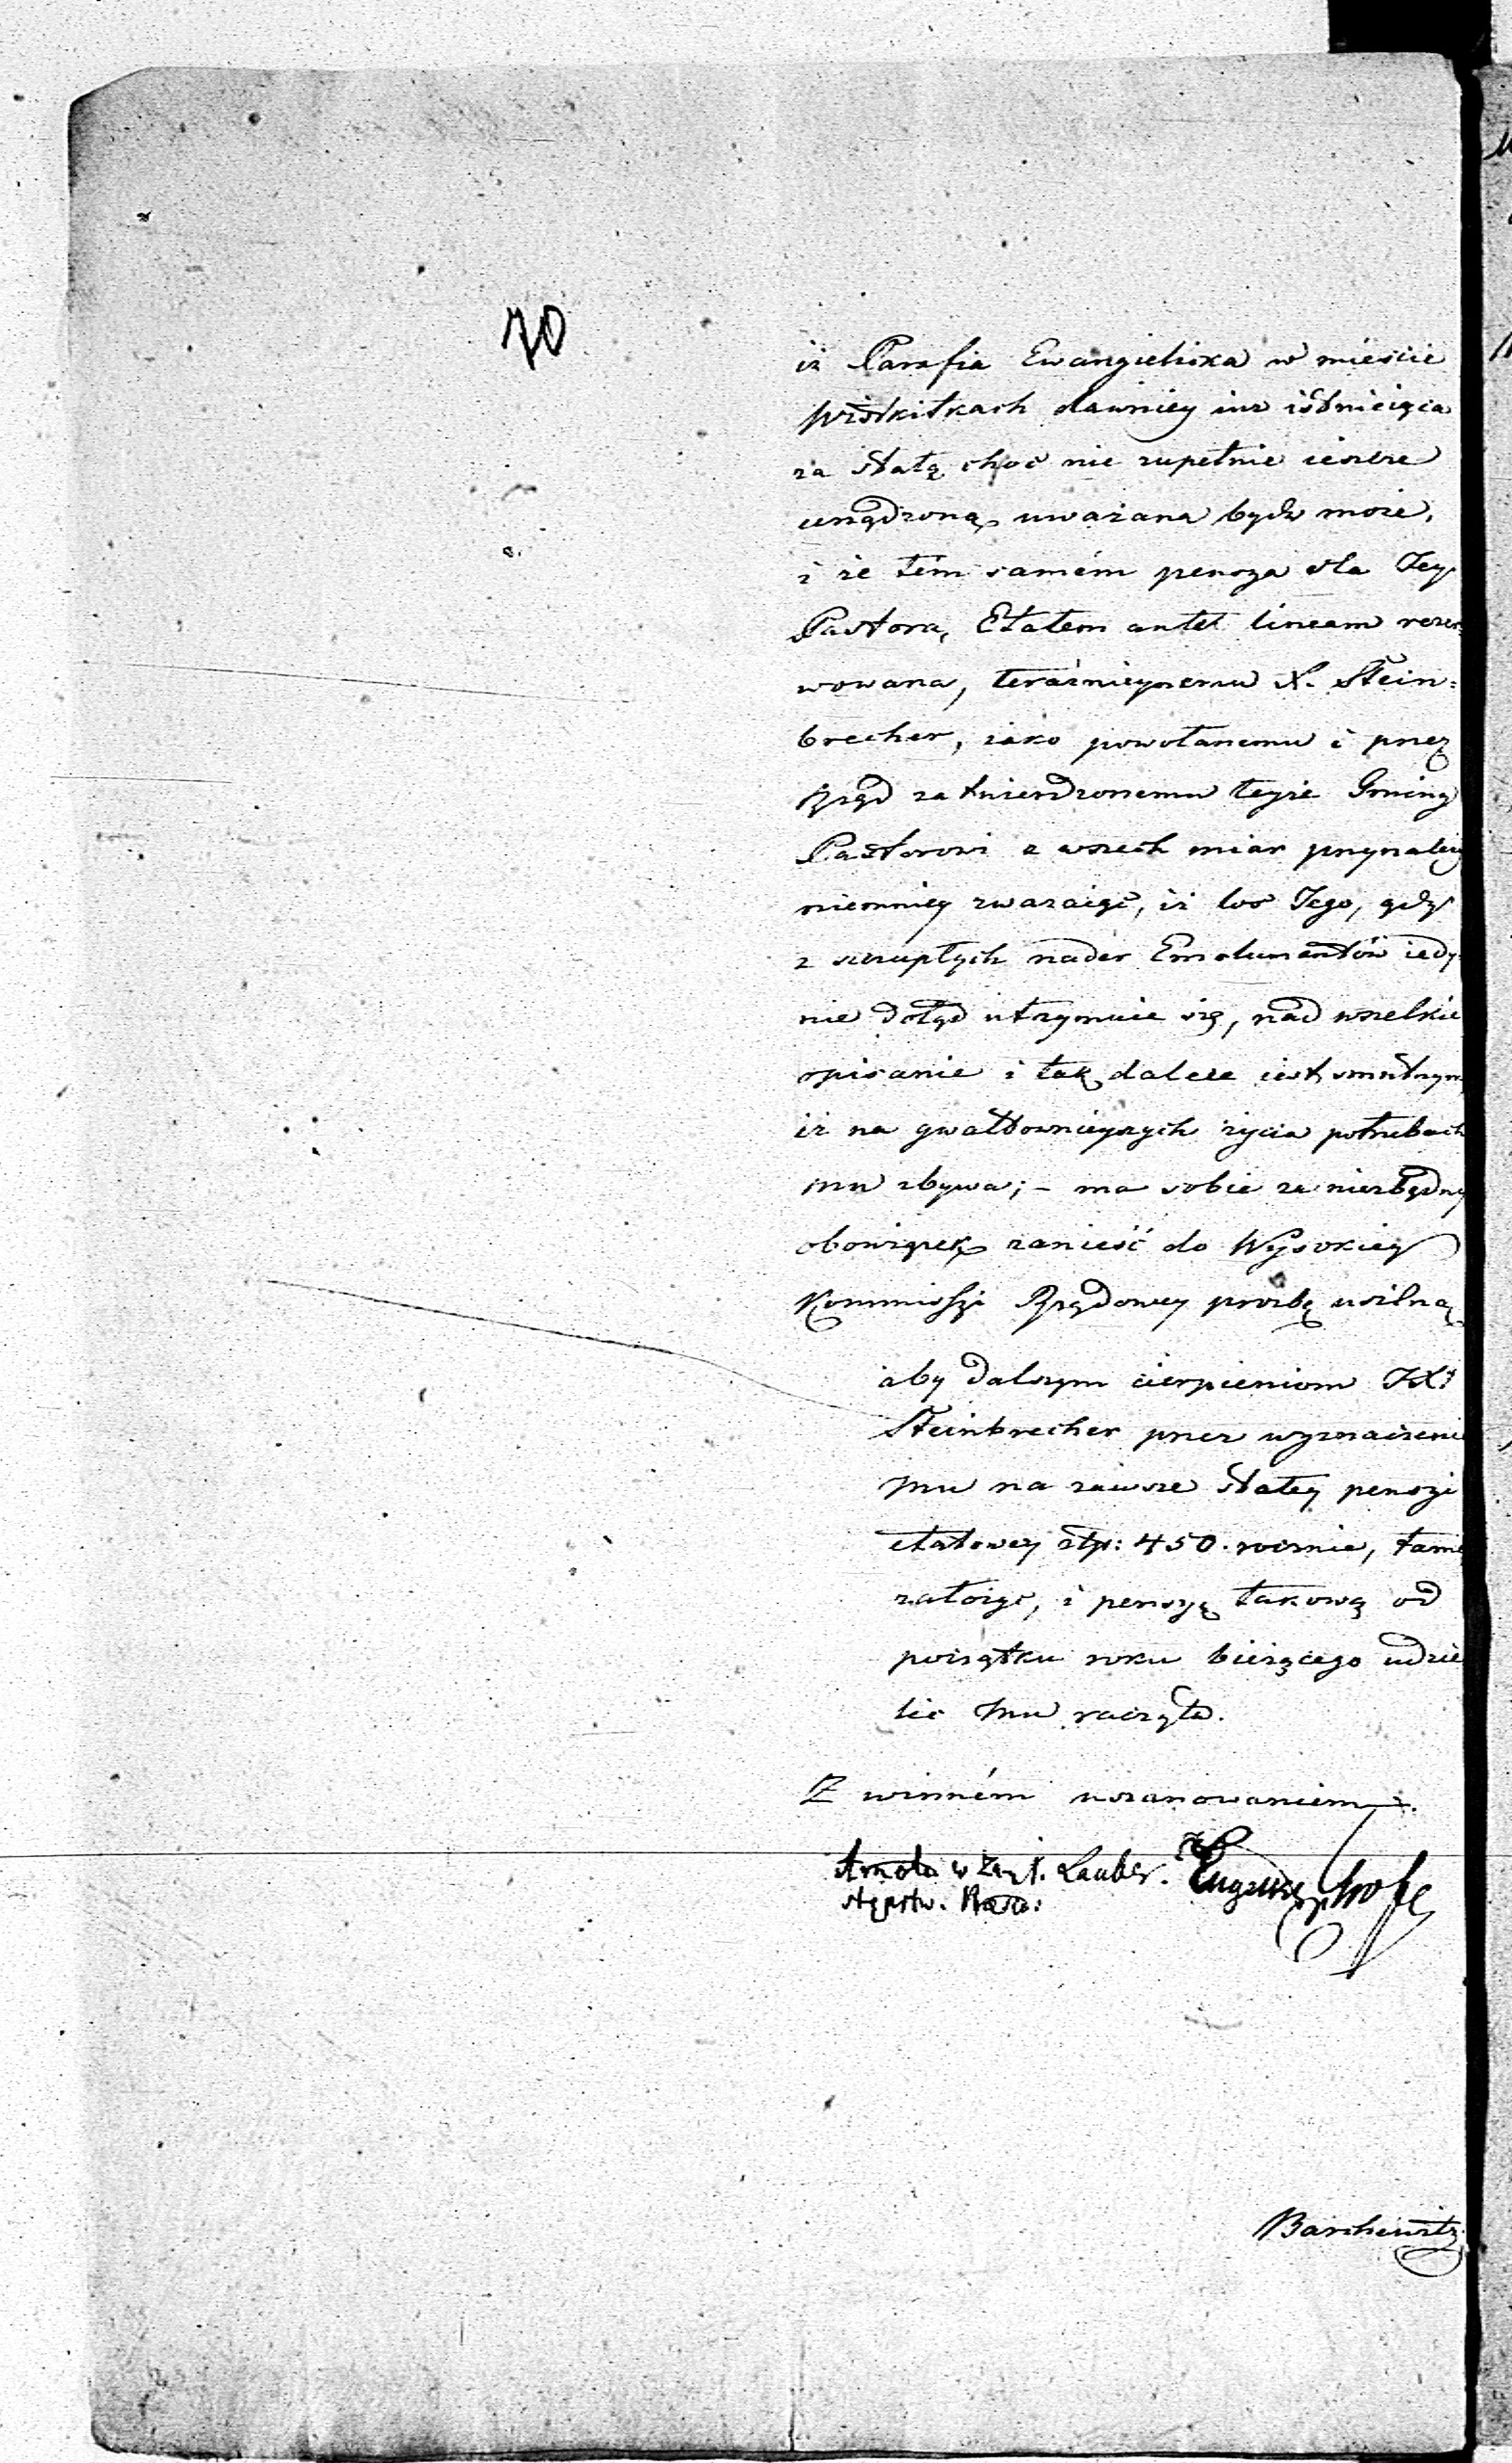 70
iż Parafia Ewangielicka w mieście
Wiskitkach dawniey iuż istnieiąca
za stałą choć nie zupełnie ieszcze
urządzoną uważana bydź może,
i że tém samém pensya dla Jey
Pastora, Etatem ante lineam rezer=
wowana, teraźnieyszemu X. Stein=
brecher, iako powołanemu i przez
Rząd zatwierdzonemu teyże Gminy
Pastorowi z wszech miar przynależy
niemniey zważaiąc, iż los Jego, gdy
z szczupłych nader Emolumentów iedy
nie dotąd utrzymuie się, nad wszelkie
opisanie i tak dalece iest smutnym
iż na gwałtownieyszych życia potrzebach
mu zbywa; – ma sobie za niezbędny
obowiązek zanieść do Wysokiey
Kommissyi Rządowey prozbę usilną
aby dalszym cierpieniom JX:
Steinbrecher przez wyznaczenie
mu na zawsze stałey pensyi
etatowey złp: 450. rocznie, tamę
założyć, i pensyę takową od
początku roku bieżącego udzie
lić mu raczyła.
Z winném uszanowaniem.
w Zast. Lauber.
Barchewitz